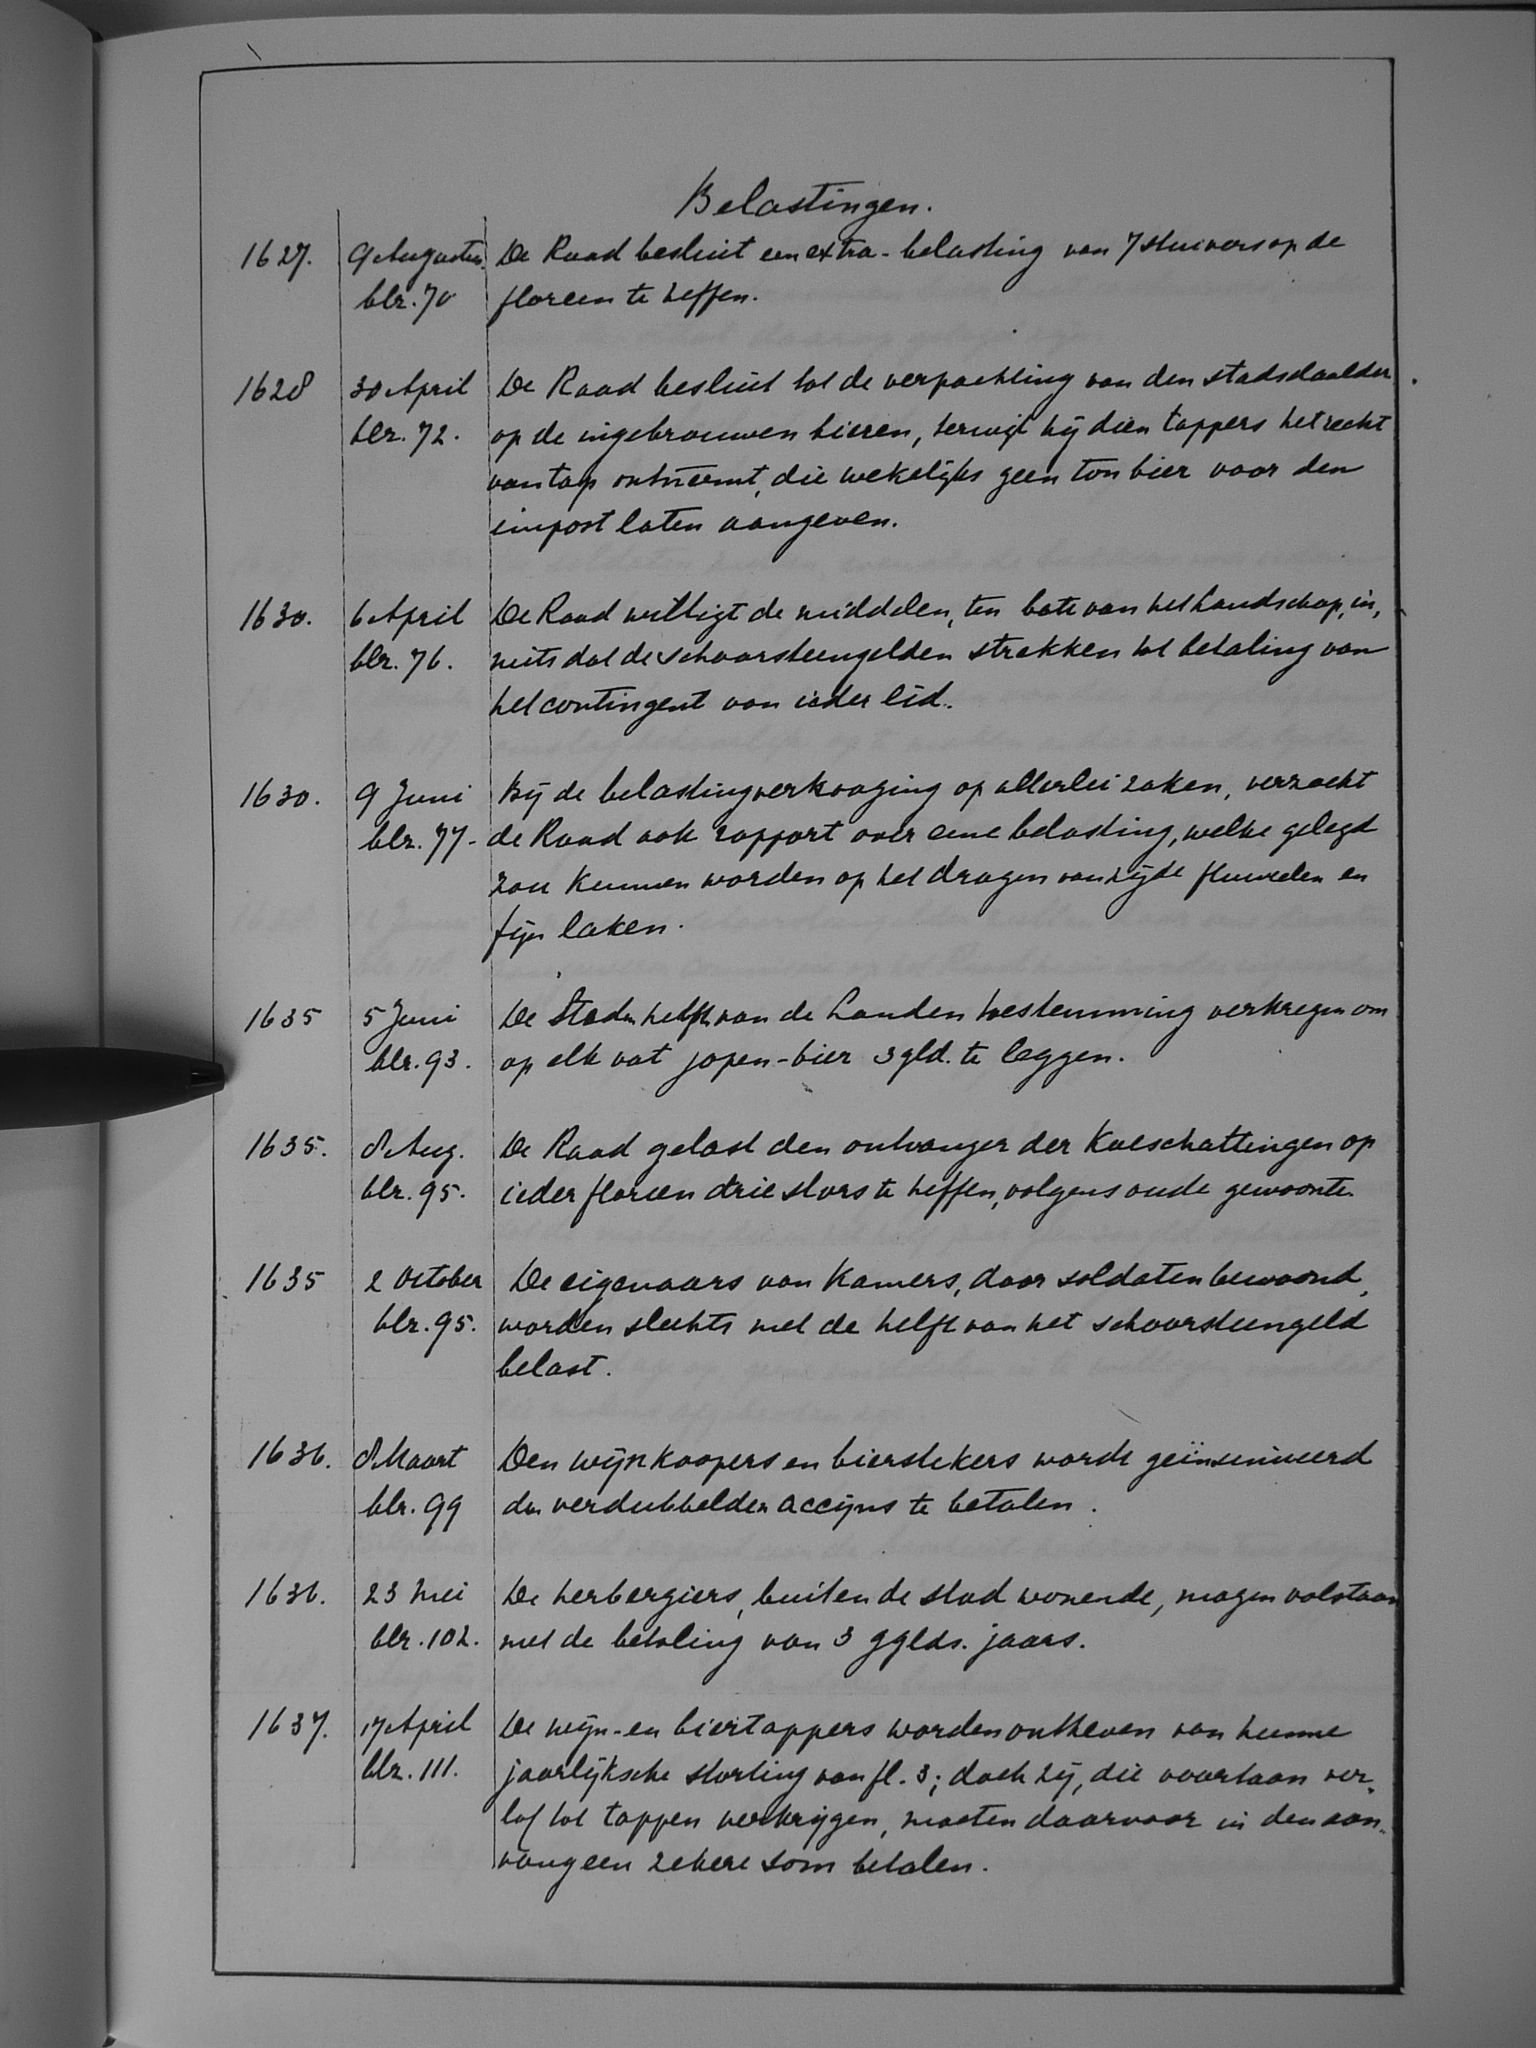 Belastingen.
1627. 9 Augustus. De Raad besluit een extra-belasting van 7 stuivers op de
blz. 70 floreen te heffen.
1628 30 April De Raad besluit tot de verpachting van den stadsdaalder
blz. 72. op de ingebrouwen bieren, terwijl hij dien tappers het recht
van tap ontneemt, die wekelijks geen ton bier voor den
impost laten aangeven.
1630. 6 April De Raad willigt de middelen, ten bate van het Landschap, in,
blz. 76. mits dat de schoorsteengelden strekken tot betaling van
het contingent van ieder lid.
1630. 9 Juni Bij de belastingverhooging op allerlei zaken, verzoekt
blz. 77. de Raad ook rapport over eene belasting, welke gelegd
zou kunnen worden op het dragen van zijde fluweelen en
fijn laken.
1635 5 Juni De Stad heeft van de Landen toestemming verkregen om
blz. 93. op elk vat jopen-bier 3 gld. te leggen.
1635. 8 Aug. De Raad gelast den ontvanger der Koeschattingen op
blz. 95. ieder floreen drie stvrs te heffen, volgens oude gewoonte.
1635 2 October De eigenaars van Kamers, door soldaten bewoond,
blz. 95. worden slechts met de helft van het schoorsteengeld
belast.
1636. 8 Maart Den wijnkoopers en bierstekers wordt geïnsinueerd
blz. 99 den verdubbelden accijns te betalen.
1636. 23 Mei De herbergiers, buiten de stad wonende, mogen volstaan
blz. 102. met de betaling van 3 gglds. jaars.
1637. 17 April De wijn- en biertappers worden ontheven van hunne
blz. 111. jaarlijksche storting van fl. 3; doch zij, die voortaan ver-
lof tot tappen verkrijgen, moeten daarvoor in den aan-
vang een zekere som betalen.